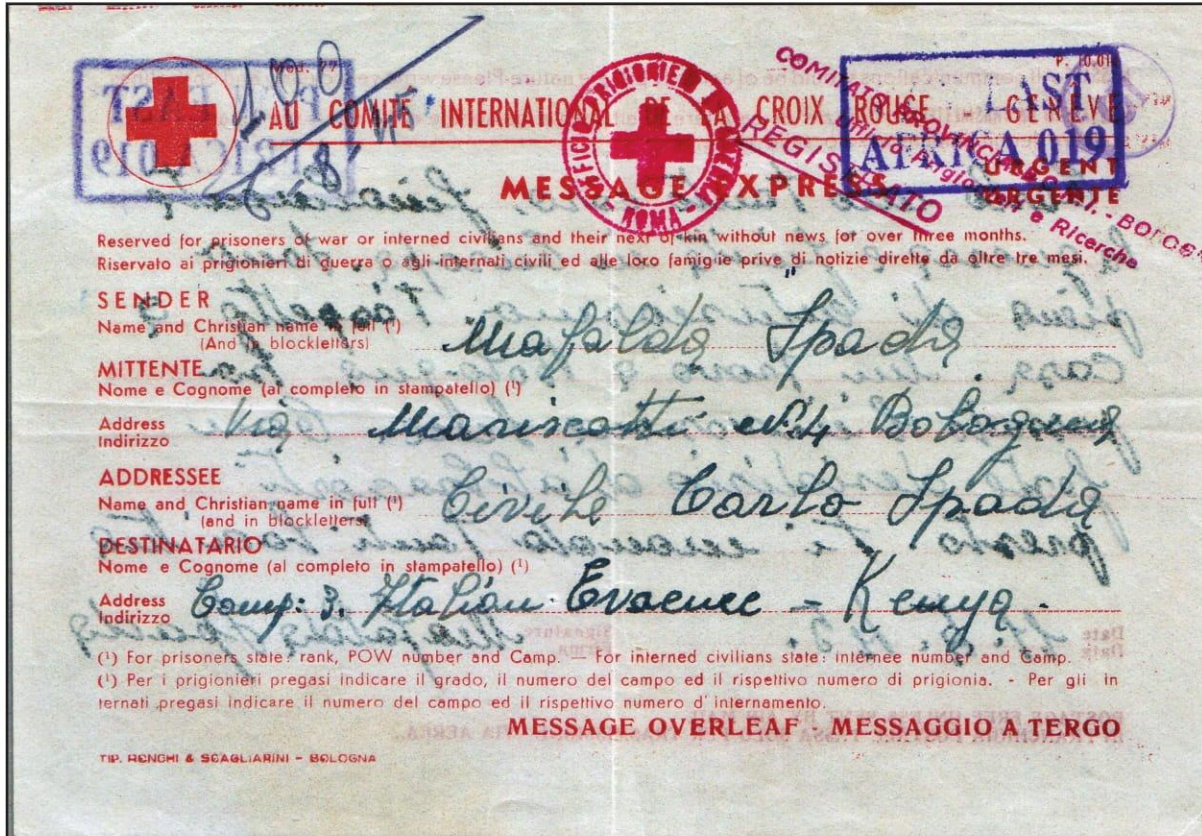 Mod. 77
P. 10.010
100
AU COMITÉ INTERNATIONAL DE LA CROIX ROUGE - GENÈVE
UFFICIO PRIGIONIERI DI GUERRA - ROMA -
COMITATO PROVINCIALE C.R.I. - BOLOGNA
Ufficio Prigionieri e Ricerche
REGISTRATO
EAST
AFRICA 019
MESSAGE EXPRESS
URGENT
URGENTE
Reserved for prisoners of war or interned civilians and their next of kin without news for over three months.
Riservato ai prigionieri di guerra o agli internati civili ed alle loro famiglie prive di notizie dirette da oltre tre mesi.
SENDER
Name and Christian name in full (¹)
(And in blockletters)
Mafalda Spada
MITTENTE
Nome e Cognome (al completo in stampatello) (¹)
Address
Indirizzo
Via Mariscotti N. 4 Bologna
ADDRESSEE
Name and Christian name in full (¹)
(and in blockletters)
Civile Carlo Spada
DESTINATARIO
Nome e Cognome (al completo in stampatello) (¹)
Address
Indirizzo
Camp: 3. Italian Evacuee - Kenya.
(¹) For prisoners state: rank, POW number and Camp. — For interned civilians state: internee number and Camp.
(¹) Per i prigionieri pregasi indicare il grado, il numero del campo ed il rispettivo numero di prigionia. - Per gli in
ternati pregasi indicare il numero del campo ed il rispettivo numero d'internamento.
MESSAGE OVERLEAF - MESSAGGIO A TERGO
TIP. RENCHI & SCAGLIARINI - BOLOGNA